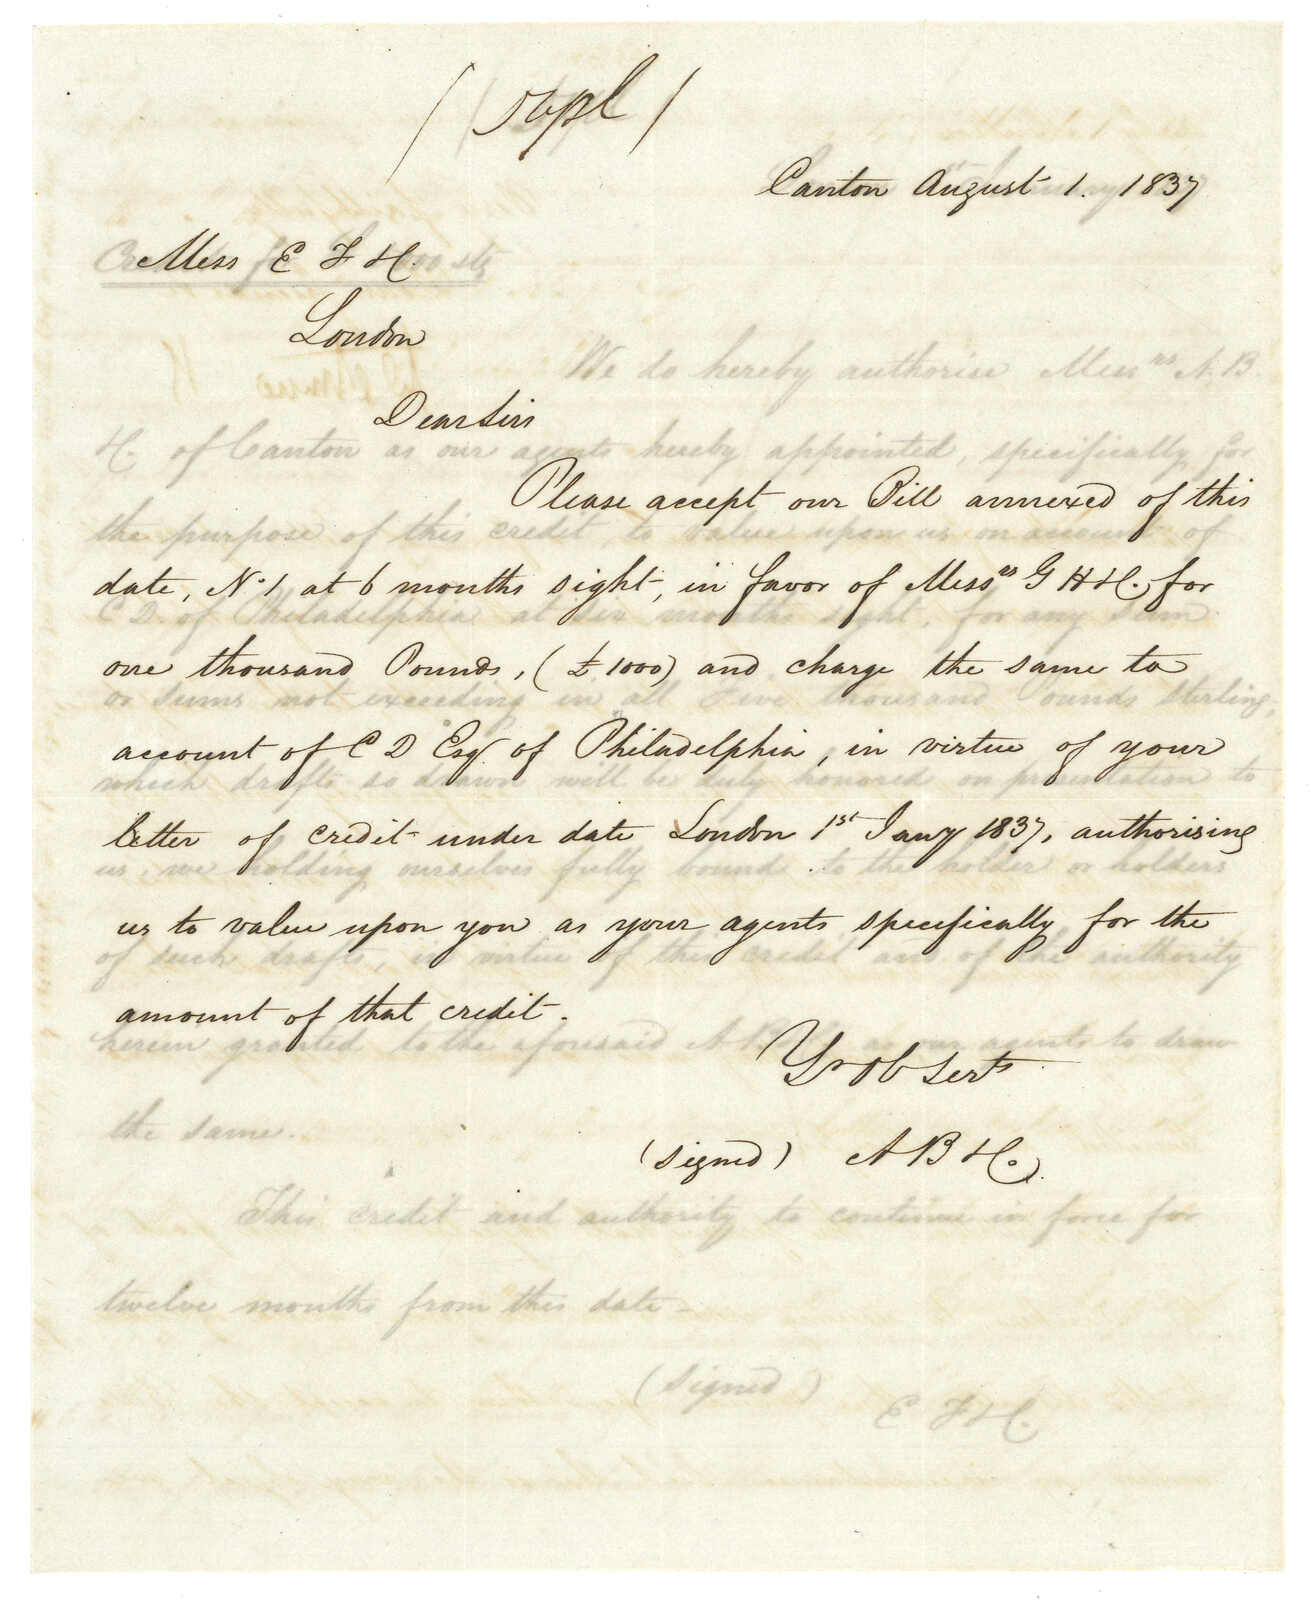 (Copy)
Canton August 1. 1837
Mess E F & Co.
London
Dear Sirs
Please accept our Bill annexed of this
date, No 1 at 6 months sight, in favor of Messrs G H & Co. for
one thousand Pounds, (£1000) and charge the same to
account of C D Esqr. of Philadelphia, in virtue of your
letter of credit under date London 1st Jany 1837, authorising
us to value upon you as your agents specifically for the
amount of that credit.
Yr Ob Serts
(signed) A B & Co.
We do hereby authorise Messrs A. B.
& Co. of Canton as our agents hereby appointed, specifically for
the purpose of this credit to value upon us on account of
C D. of Philadelphia at six months sight, for any sum
or sums not exceeding in all Five thousand Pounds sterling,
which drafts so drawn will be duly honored on presentation to
us, we holding ourselves fully bound to the holder or holders
of such drafts, in virtue of this credit and of the authority
herein granted to the aforesaid A B as our agents to draw
the same.
This credit and authority to continue in force for
twelve months from this date
(signed)
E F & Co.